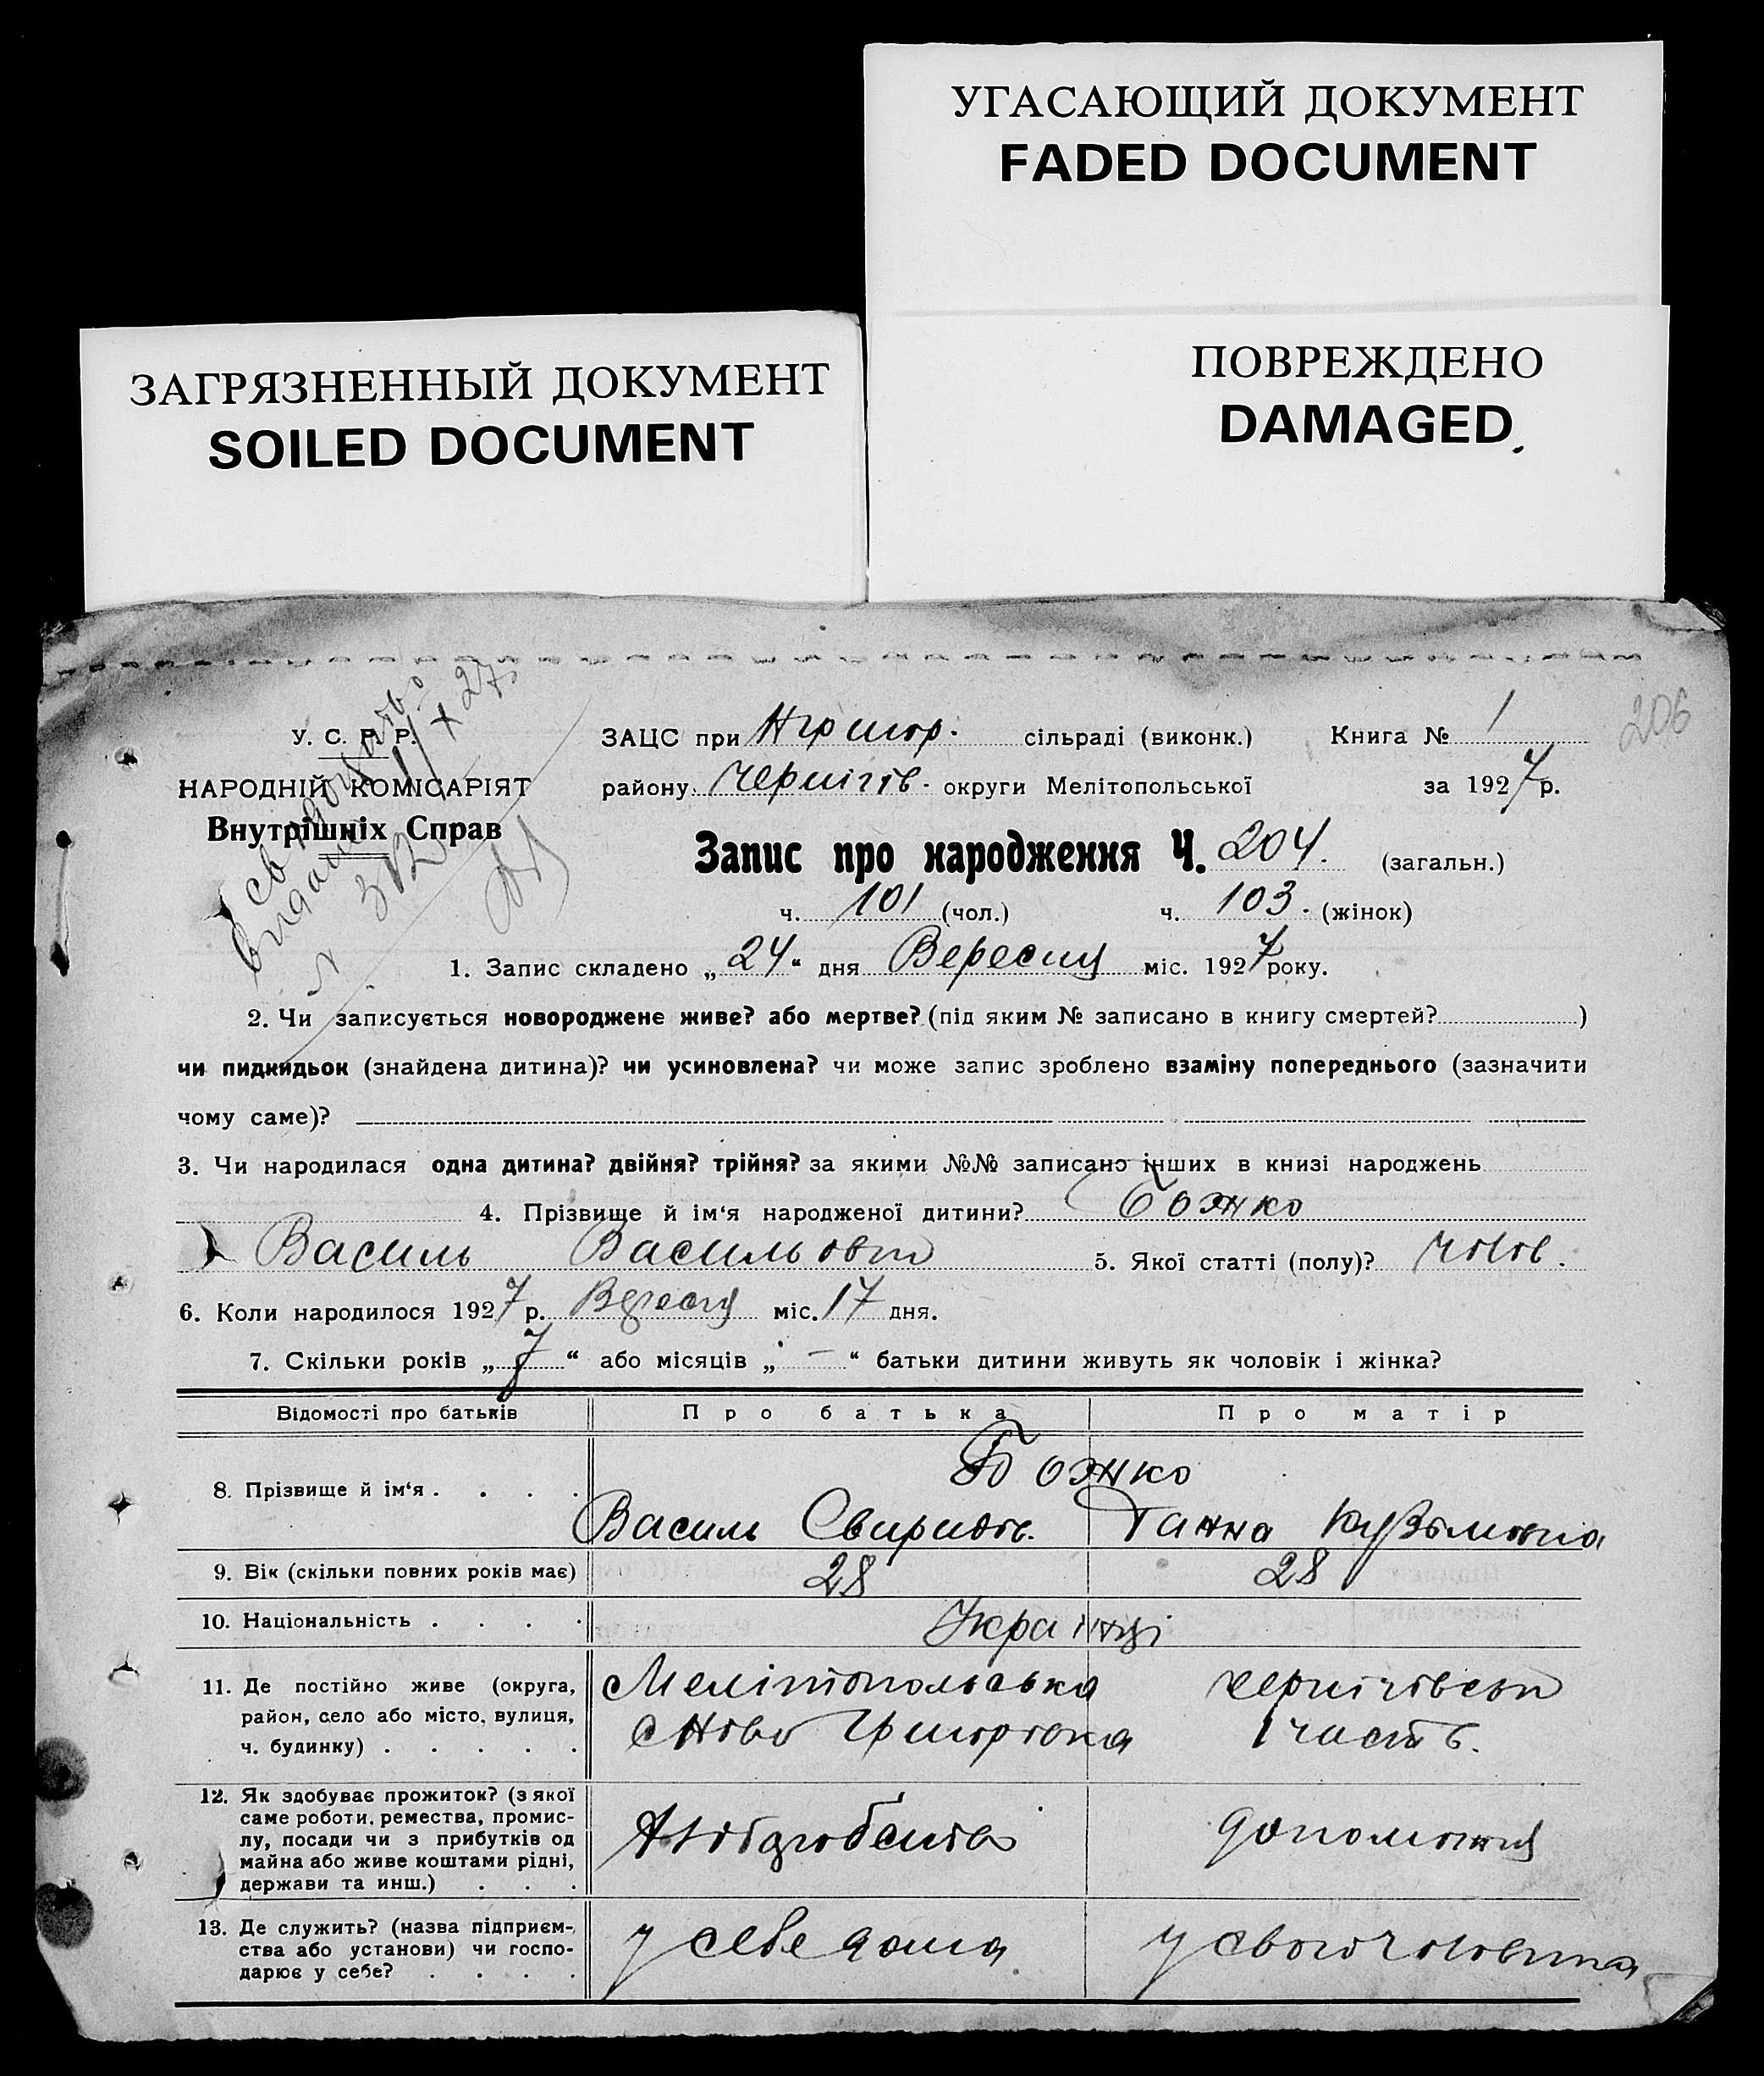 УГАСАЮЩИЙ ДОКУМЕНТ
FADED DOCUMENT
ЗАГРЯЗНЕННЫЙ ДОКУМЕНТ
SOILED DOCUMENT
ПОВРЕЖДЕНО
DAMAGED
206
У. С. Р. Р.
НАРОДНІЙ КОМІСАРІЯТ
Внутрішніх Справ
ЗАЦС при НГригор. сільраді (виконк.) Книга № 1
району Чернігів. округи Мелітопольської за 1927 р.
Запис про народження Ч. 204. (загальн.)
ч. 101 (чол.) ч. 103. (жінок)
1. Запис складено „24“ дня Вересня міс. 1927 року.
2. Чи записується новороджене живе? або мертве? (під яким № записано в книгу смертей? )
чи пидкидьок (знайдена дитина)? чи усиновлена? чи може запис зроблено взаміну попереднього (зазначити
чому саме)?
3. Чи народилася одна дитина? двійня? трійня? за якими №№ записано інших в книзі народжень
4. Прізвище й ім‘я народженої дитини? Божко
Василь Васильович 5. Якої статті (полу)? Чолов.
6. Коли народилося 1927 р. Вересня міс. 17 дня.
7. Скільки років „7“ або місяців „-“ батьки дитини живуть як чоловік і жінка?
Відомості про батьків Про батька Про матір
8. Прізвище й ім‘я . . . . Божко
Василь Свиридов. Ганна Кузьмовна
9. Вік (скільки повних років має) 28 28
10. Національність . . . . Українці
11. Де постійно живе (округа, район, село або місто, вулиця, ч. будинку) . . . . .
Мелітопольська Чернігівськ
с Ново Григоровка 1 часть.
12. Як здобуває прожиток? (з якої саме роботи, ремества, промислу, посади чи з прибутків од майна або живе коштами рідні, держави та инш.) . . .
Хліборобство допомогая
13. Де служить? (назва підприємства або установи) чи господарює у себе? . . . .
у себе дома у свого чоловіка